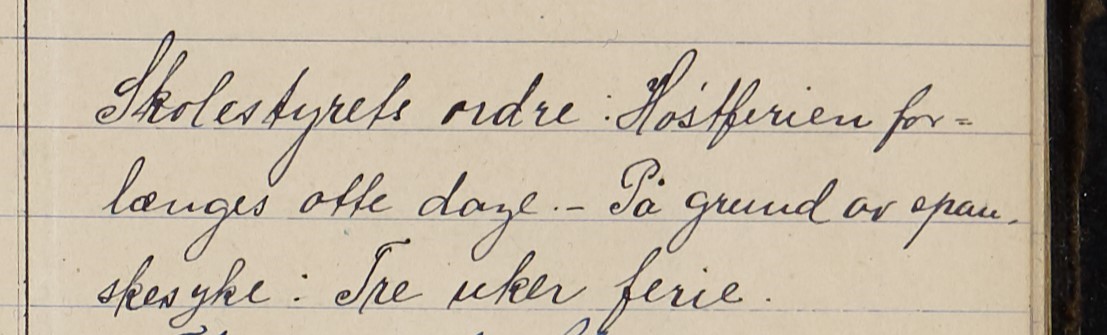 Skolestyrets ordre: Høstferien for=
længes otte dage. - På grund av span-
skesyke: Tre uker ferie.